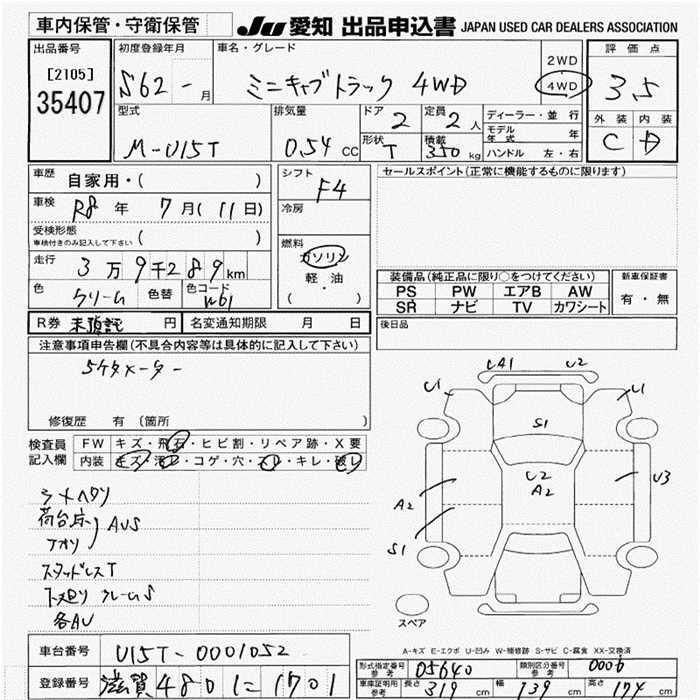 車内保管・守衛保管
JU 愛知 出品申込書 JAPAN USED CAR DEALERS ASSOCIATION
出品番号
[2105]
35407
初度登録年月
S62 - 月
車名・グレード
ミニキャブトラック 4WD
2WD
4WD
評価点
3.5
外装 内装
C D
型式
M-U15T
排気量
0.54 cc
ドア 2
形状 T
定員 2 人
積載 350 kg
ディーラー・並行
モデル年式 年
ハンドル 左・右
車歴 自家用・( )
車検 R8 年 7 月 ( 11 日)
受検形態
車検付きのみ記入して下さい ( )
走行 3万9千289 km
色 クリーム 色替 色コード W61
シフト F4
冷房
燃料
ガソリン
軽・油
( ・ )
セールスポイント(正常に機能するものに限ります)
装備品(純正品に限り○をつけてください)
PS PW エアB AW
SR ナビ TV カワシート
新車保証書
有・無
後日品
R券 未預託 円 名変通知期限 月 日
注意事項申告欄(不具合内容等は具体的に記入して下さい)
5ケタメーター
修復歴 有 〔箇所 〕
検査員記入欄
FW キズ・飛石・ヒビ割・リペア跡・X要
内装 キズ・汚レ・コゲ・穴・スレ・キレ・破レ
ラメハクリ
荷台床
アオリ AUS
スタッドレスT
下廻り フレームS
各AU
UA1 U2
U1 U1
S1
U2
A2
U3
A2
S1
スペア
A-キズ E-エクボ U-凹み W-補修跡 S-サビ C-腐食 XX-交換済
車台番号 U15T-0001052
登録番号 滋賀 480 に 1701
形式指定番号 参考 05640 類別区分番号 参考 0006
車庫証明用 参考 長さ 319 cm 幅 139 cm 高さ 174 cm